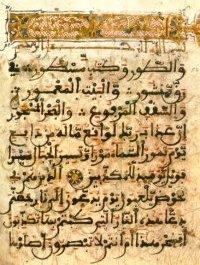 والطور وكتب مسطور في
رق منشور والبيت المعمور
والسقف المرفوع والبحر المسجور
إن عذاب ربك لواقع ما له من دافع
يوم تمور السماء مورا وتسير الجبال سيرا
فويل يومئذ للمكذبين الذين هم في
خوض يلعبون يوم يدعون إلى نار جهنم
دعا هذه النار التي كنتم بها تكذبون
أفسحر هذا أم أنتم لا تبصرون اصلوها